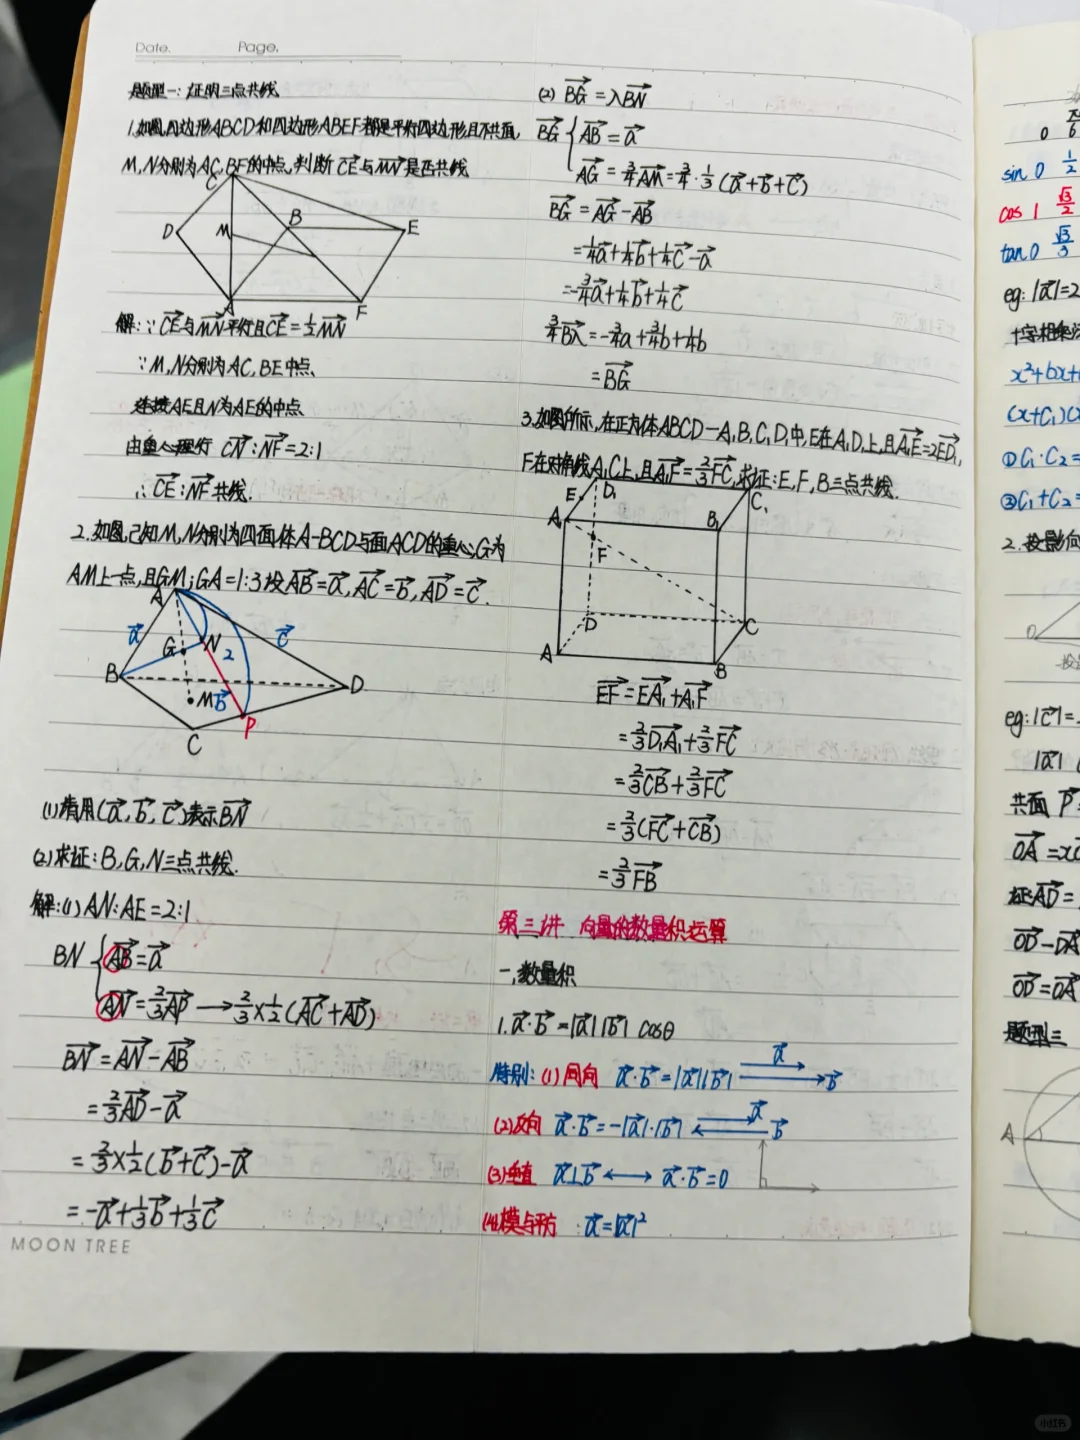 Date. Page.
题型一:证明三点共线
1.如图,四边形ABCD和四边形ABEF都是平行四边形,且不共面,
M,N分别为AC,BF的中点,判断CE→与MN→是否共线
C
D
M
B
E
A
F
解:∵CE→与MN→平行且CE→=½MN→
∵M,N分别为AC,BE中点、
连接AE且N为AE的中点
由重心 CN→:NF→=2:1
∴CE→:NF→共线.
2.如图,已知M,N分别为四面体A-BCD与面ACD的重心,G为
AM上一点,且GM:GA=1:3设AB→=a→,AC→=b→,AD→=c→.
A
a→
G
N
2
c→
B
M
b→
D
P
C
(1)请用(a→,b→,c→)表示BN→
(2)求证:B,G,N三点共线.
解:(1)AN:AE=2:1
BN { AB→=a→
AN→=⅔AP→ → ⅔×½(AC→+AD→)
BN→=AN→-AB→
=⅔AD→-a→
=⅔×½(b→+c→)-a→
=-a→+⅓b→+⅓c→
MOON TREE
(2) BG→=λBN→
BG→ { AB→=a→
AG→=¾AM→=¾·⅓(a→+b→+c→)
BG→=AG→-AB→
=¼a→+¼b→+¼c→-a→
=-¾a→+¼b→+¼c→
=BG→
3.如图所示,在正方体ABCD-A₁B₁C₁D₁中,E在A₁D₁上,且A₁E→=2ED₁→,
F在对角线A₁C上,且A₁F→=⅔FC→,求证:E,F,B三点共线.
E
D₁
C₁
A₁
B₁
F
D
C
A
B
EF→=EA₁→+A₁F→
=⅔D₁A₁→+⅔FC→
=⅔CB→+⅔FC→
=⅔(FC→+CB→)
=⅔FB→
第三讲 向量的数量积运算
一,数量积
1.a→·b→=|a→||b→| cosθ
特别:(1)同向 a→·b→=|a→||b→| a→ b→
(2)反向 a→·b→=-|a→|·|b→| a→ b→
(3)垂直 a→⊥b→ ⟷ a→·b→=0
(4)模与平方 a→=|a→|²
0
sin 0 ½
cos 1 √3/2
tan 0 √3/3
eg:|a→|=2
十字相乘法
(x+C₁)(
①C₁·C₂=
②C₁+C₂=
2.投影向
eg:|c→|=
|a→|
共面 P→=
OA→=x
证:AD→=
OD→-OA
OD→=OA
题型三
A
小红书